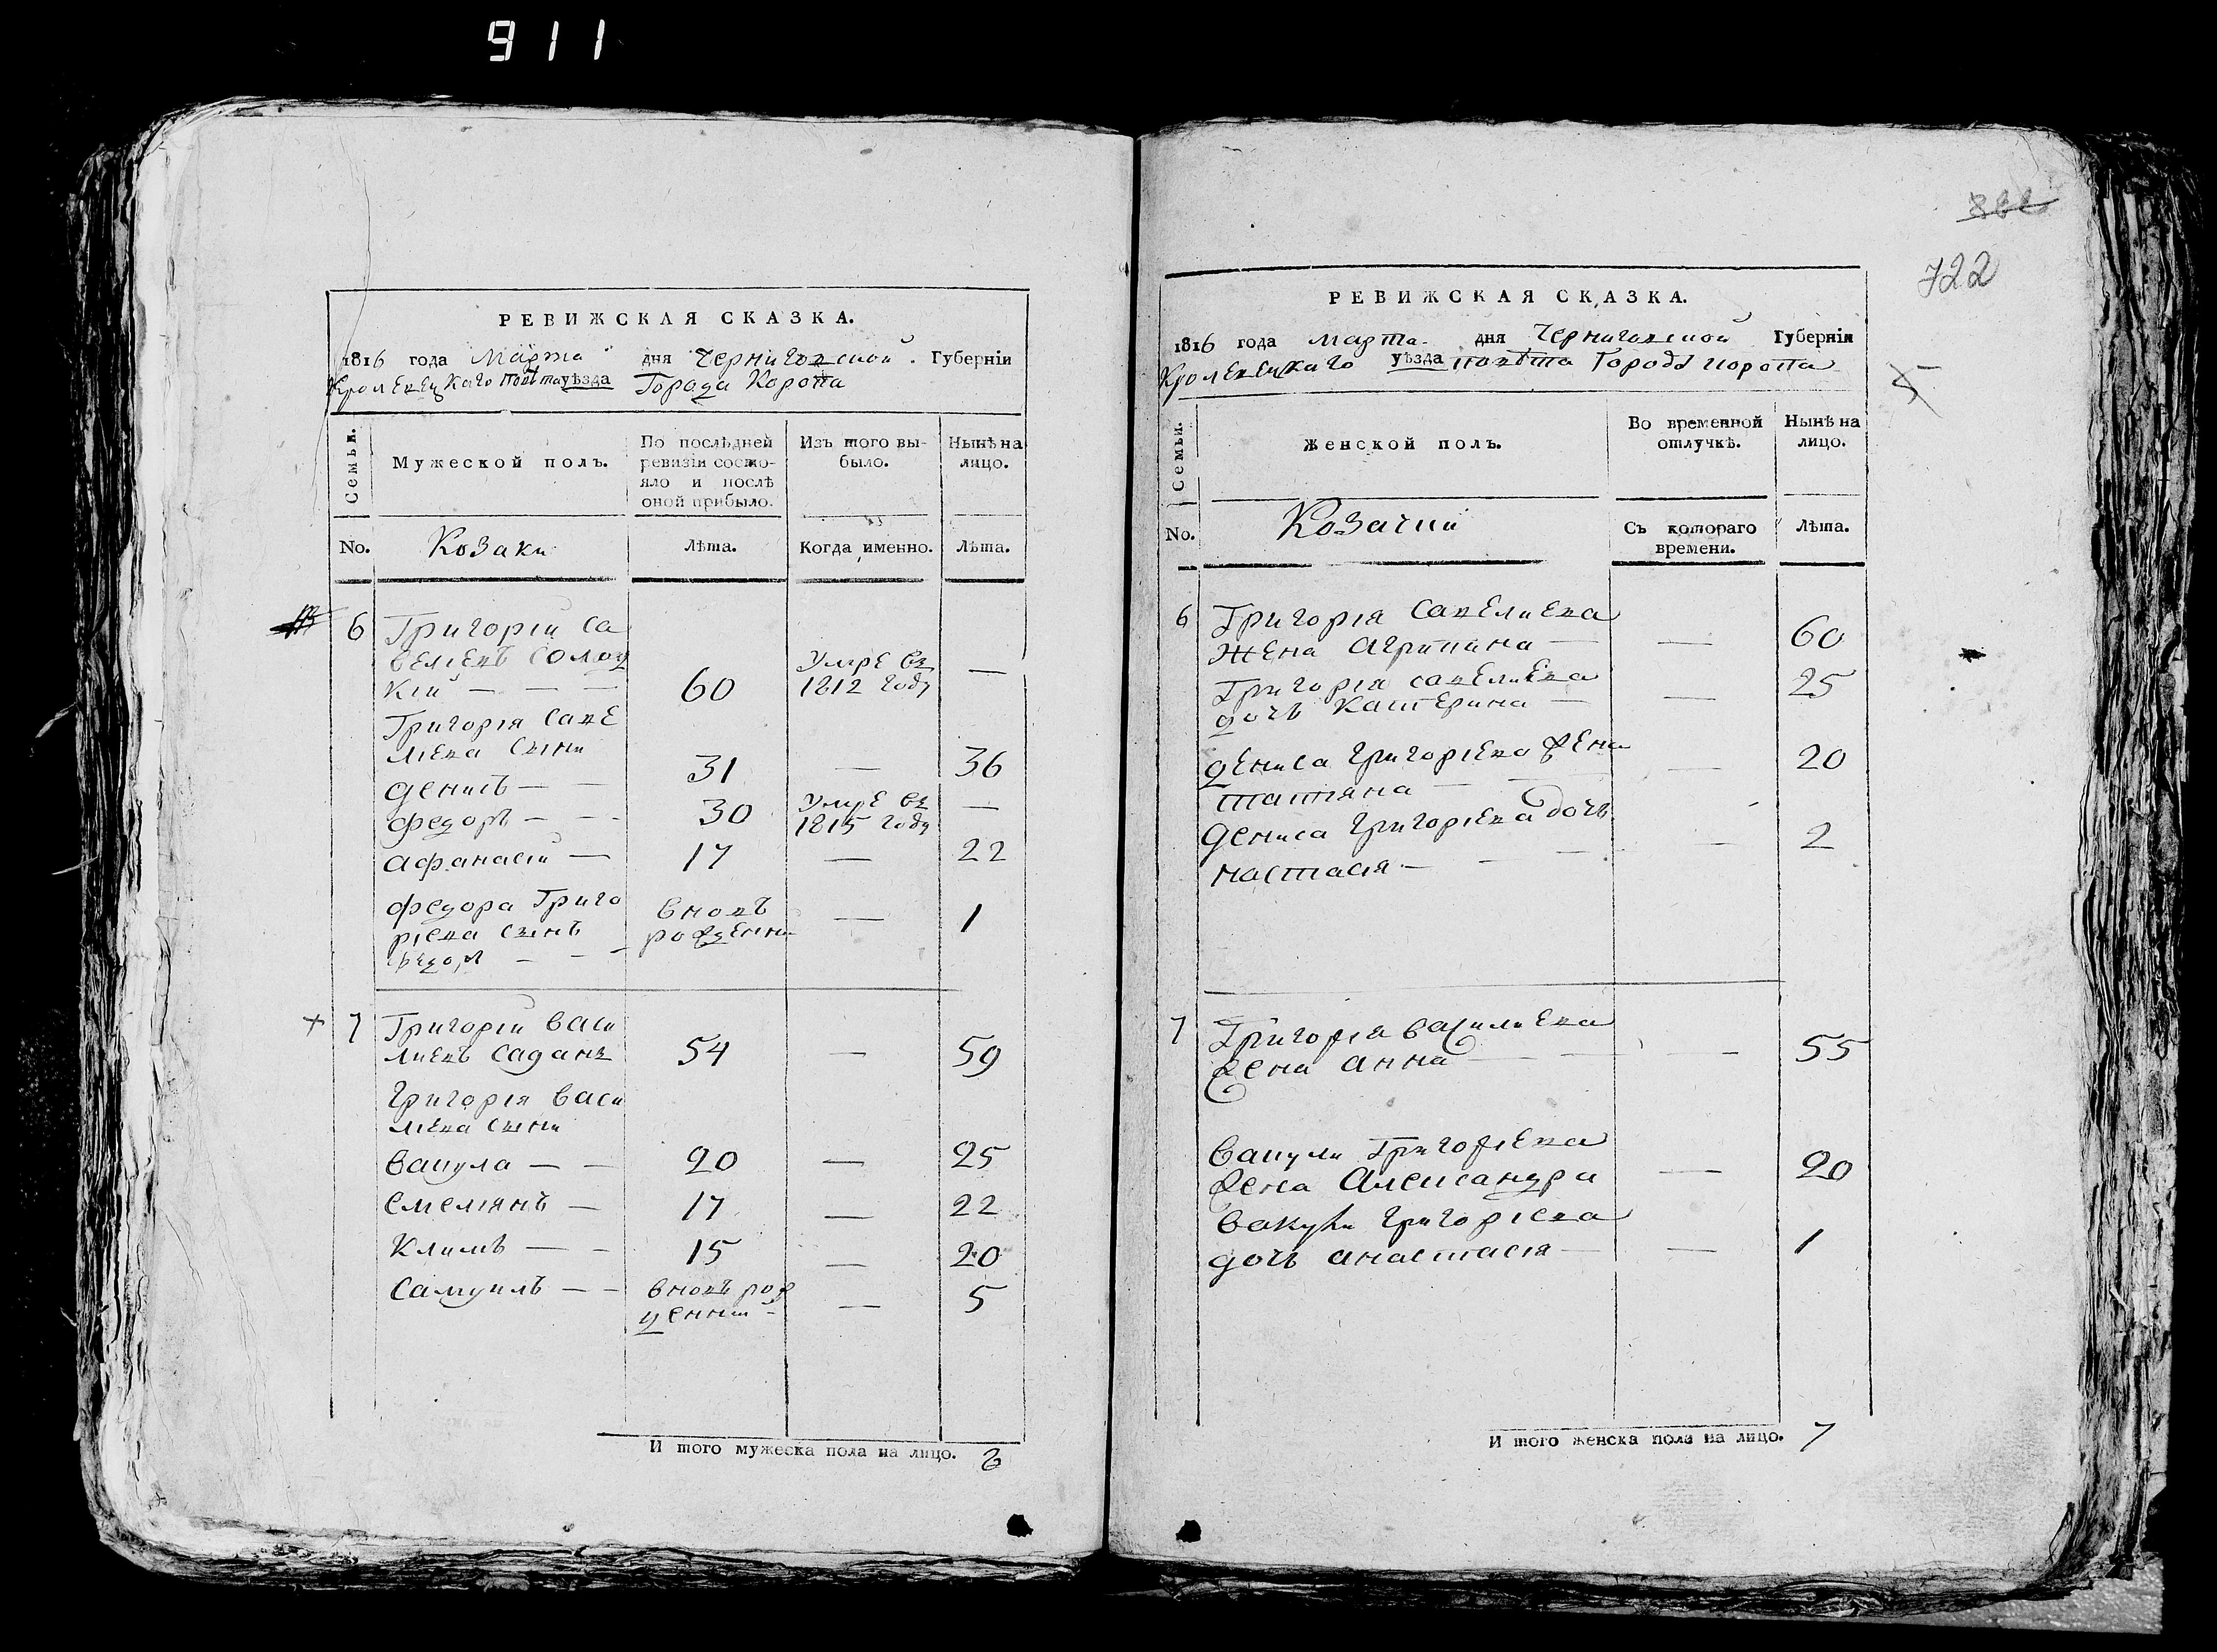 911
РЕВИЖСКАЯ СКАЗКА.
1816 года Марта дня Черниговской. Губерніи
Кролевецкаго Повѣта уѣзда Города Коропа
Семьи.
Мужеской полъ.
По послѣдней ревизіи состо-
яло и послѣ
оной прибыло.
Изъ того вы-
было.
Нынѣ на
лицо.
No.
Козаки
Лѣта.
Когда именно.
Лѣта.
6 Григорій Са
велиевъ
кій — — — 60 Умре въ 1812 году —
Григорія Саве
лиева сыни
Денисъ — — 31 — 36
Федоръ — — - 30 Умре въ 1815 году —
Афанасій — 17 — 22
Федора Григо
риева сынъ
Федоръ — — - вновь рожденни — 1
7 Григорій Васи
лиевъ Саданъ 54 — 59
Григорія Васи
лиева сыни
Вакула — — 20 — 25
Емелиянъ — 17 — 22
Климъ — - 15 — 20
Самуилъ — — вновь рож
денний - — 5
И того мужеска пола на лицо. 8
822
722
5
РЕВИЖСКАЯ СКАЗКА.
1816 года Марта - дня Черниговской Губерніи
Кролевецкаго уѣзда повѣта Города Коропа
Семьи.
Женской полъ.
Во временной
отлучкѣ.
Нынѣ на
лицо.
No.
Козачки
Съ котораго
времени.
Лѣта.
6 Григорія Савелиева
жена Агрипина — — 60
Григорія Савелиева
дочь Катерина — — 25
Дениса Григориева жена
Татияна — — 20
Дениса Григориева дочь
Настасія — - — - 2
7 Григорія Василиева
жена Анна — — 55
Вакули Григориева
жена Александра — 20
Вакули Григориева
дочь Анастасія — — 1
И того женска пола на лицо. 7